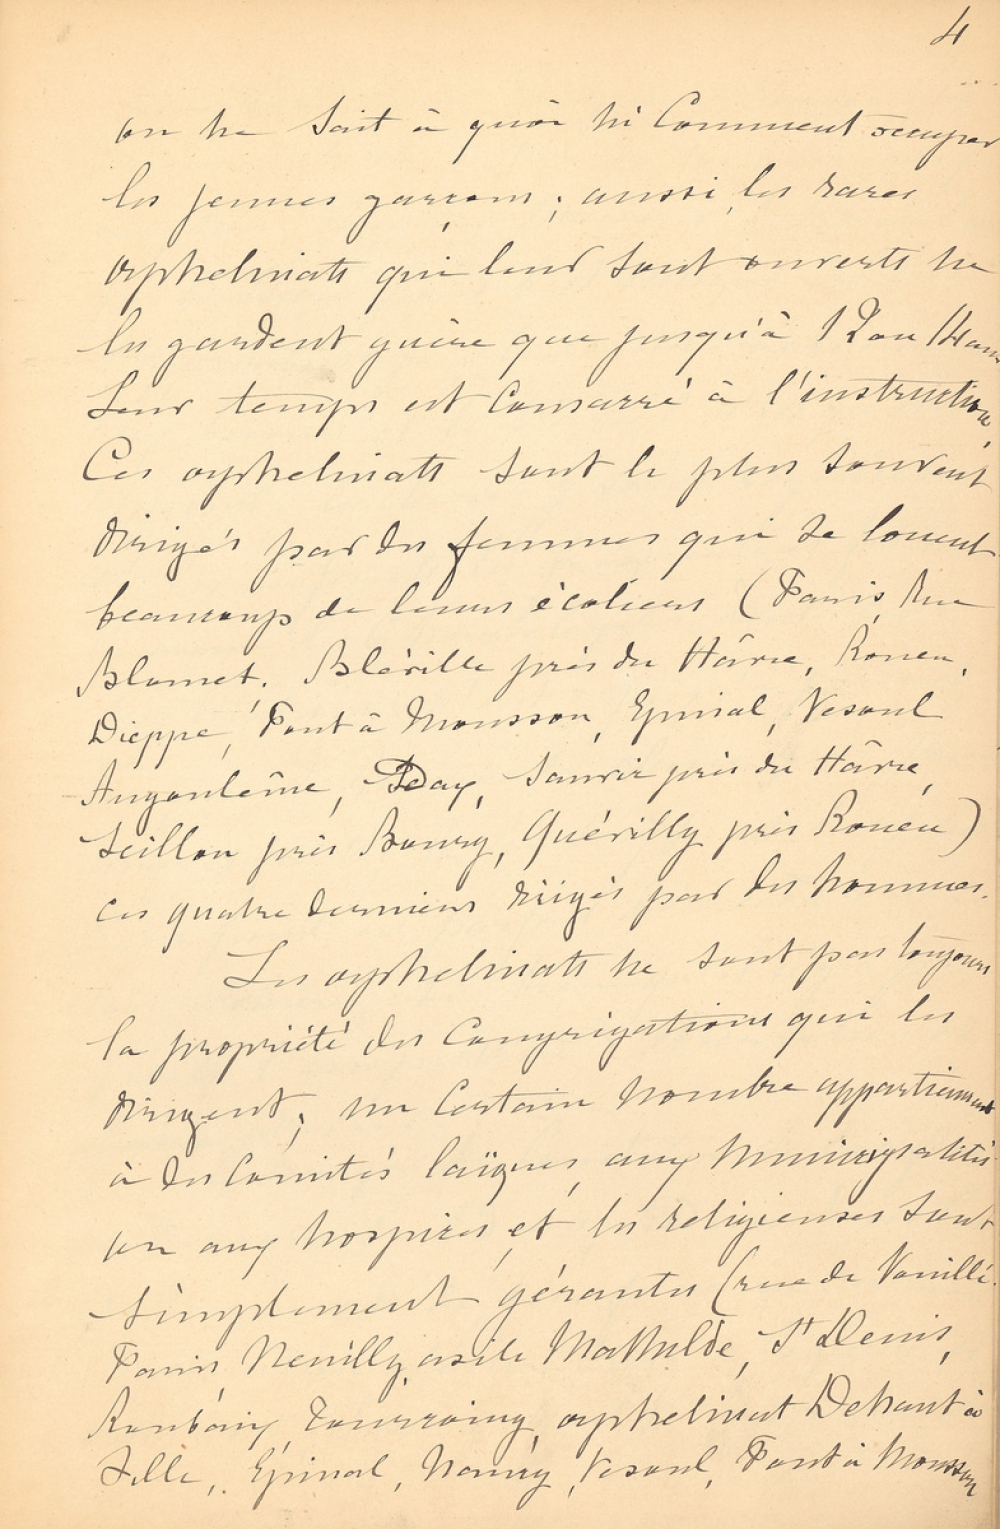 4
on ne sait à quoi ni Comment occuper
les jeunes garçons ; aussi, les rares
orphelinats qui leur sont ouverts ne
les gardent guère que jusqu'à 12 ou 14 ans
Leur temps est Consacré à l'instruction,
Ces orphelinats sont le plus souvent
dirigés par des femmes qui se louent
beaucoup de leurs écoliers (Paris, Rue
Blomet. Bléville près du Hâvre, Rouen,
Dieppe, Pont à Mousson, Epinal, Vesoul
Angoulême, Dax, Sanvic près du Hâvre,
Seillon près Bourg, Quévilly près Rouen)
ces quatre derniers dirigés par des hommes.
Les orphelinats ne sont pas toujours
la propriété des Congrégations qui les
dirigent; un Certain nombre appartiennent
à des Comités laïques, aux Municipalités
ou aux hospices, et les religieuses sont
simplement gérantes (rue de Vouillé.
Paris, Neuilly, asile Mathilde, St Denis,
Roubaix, Tourcoing, orphelinat Dehaut à
Lille, Epinal, Nancy, Vesoul, Pont à Mousson